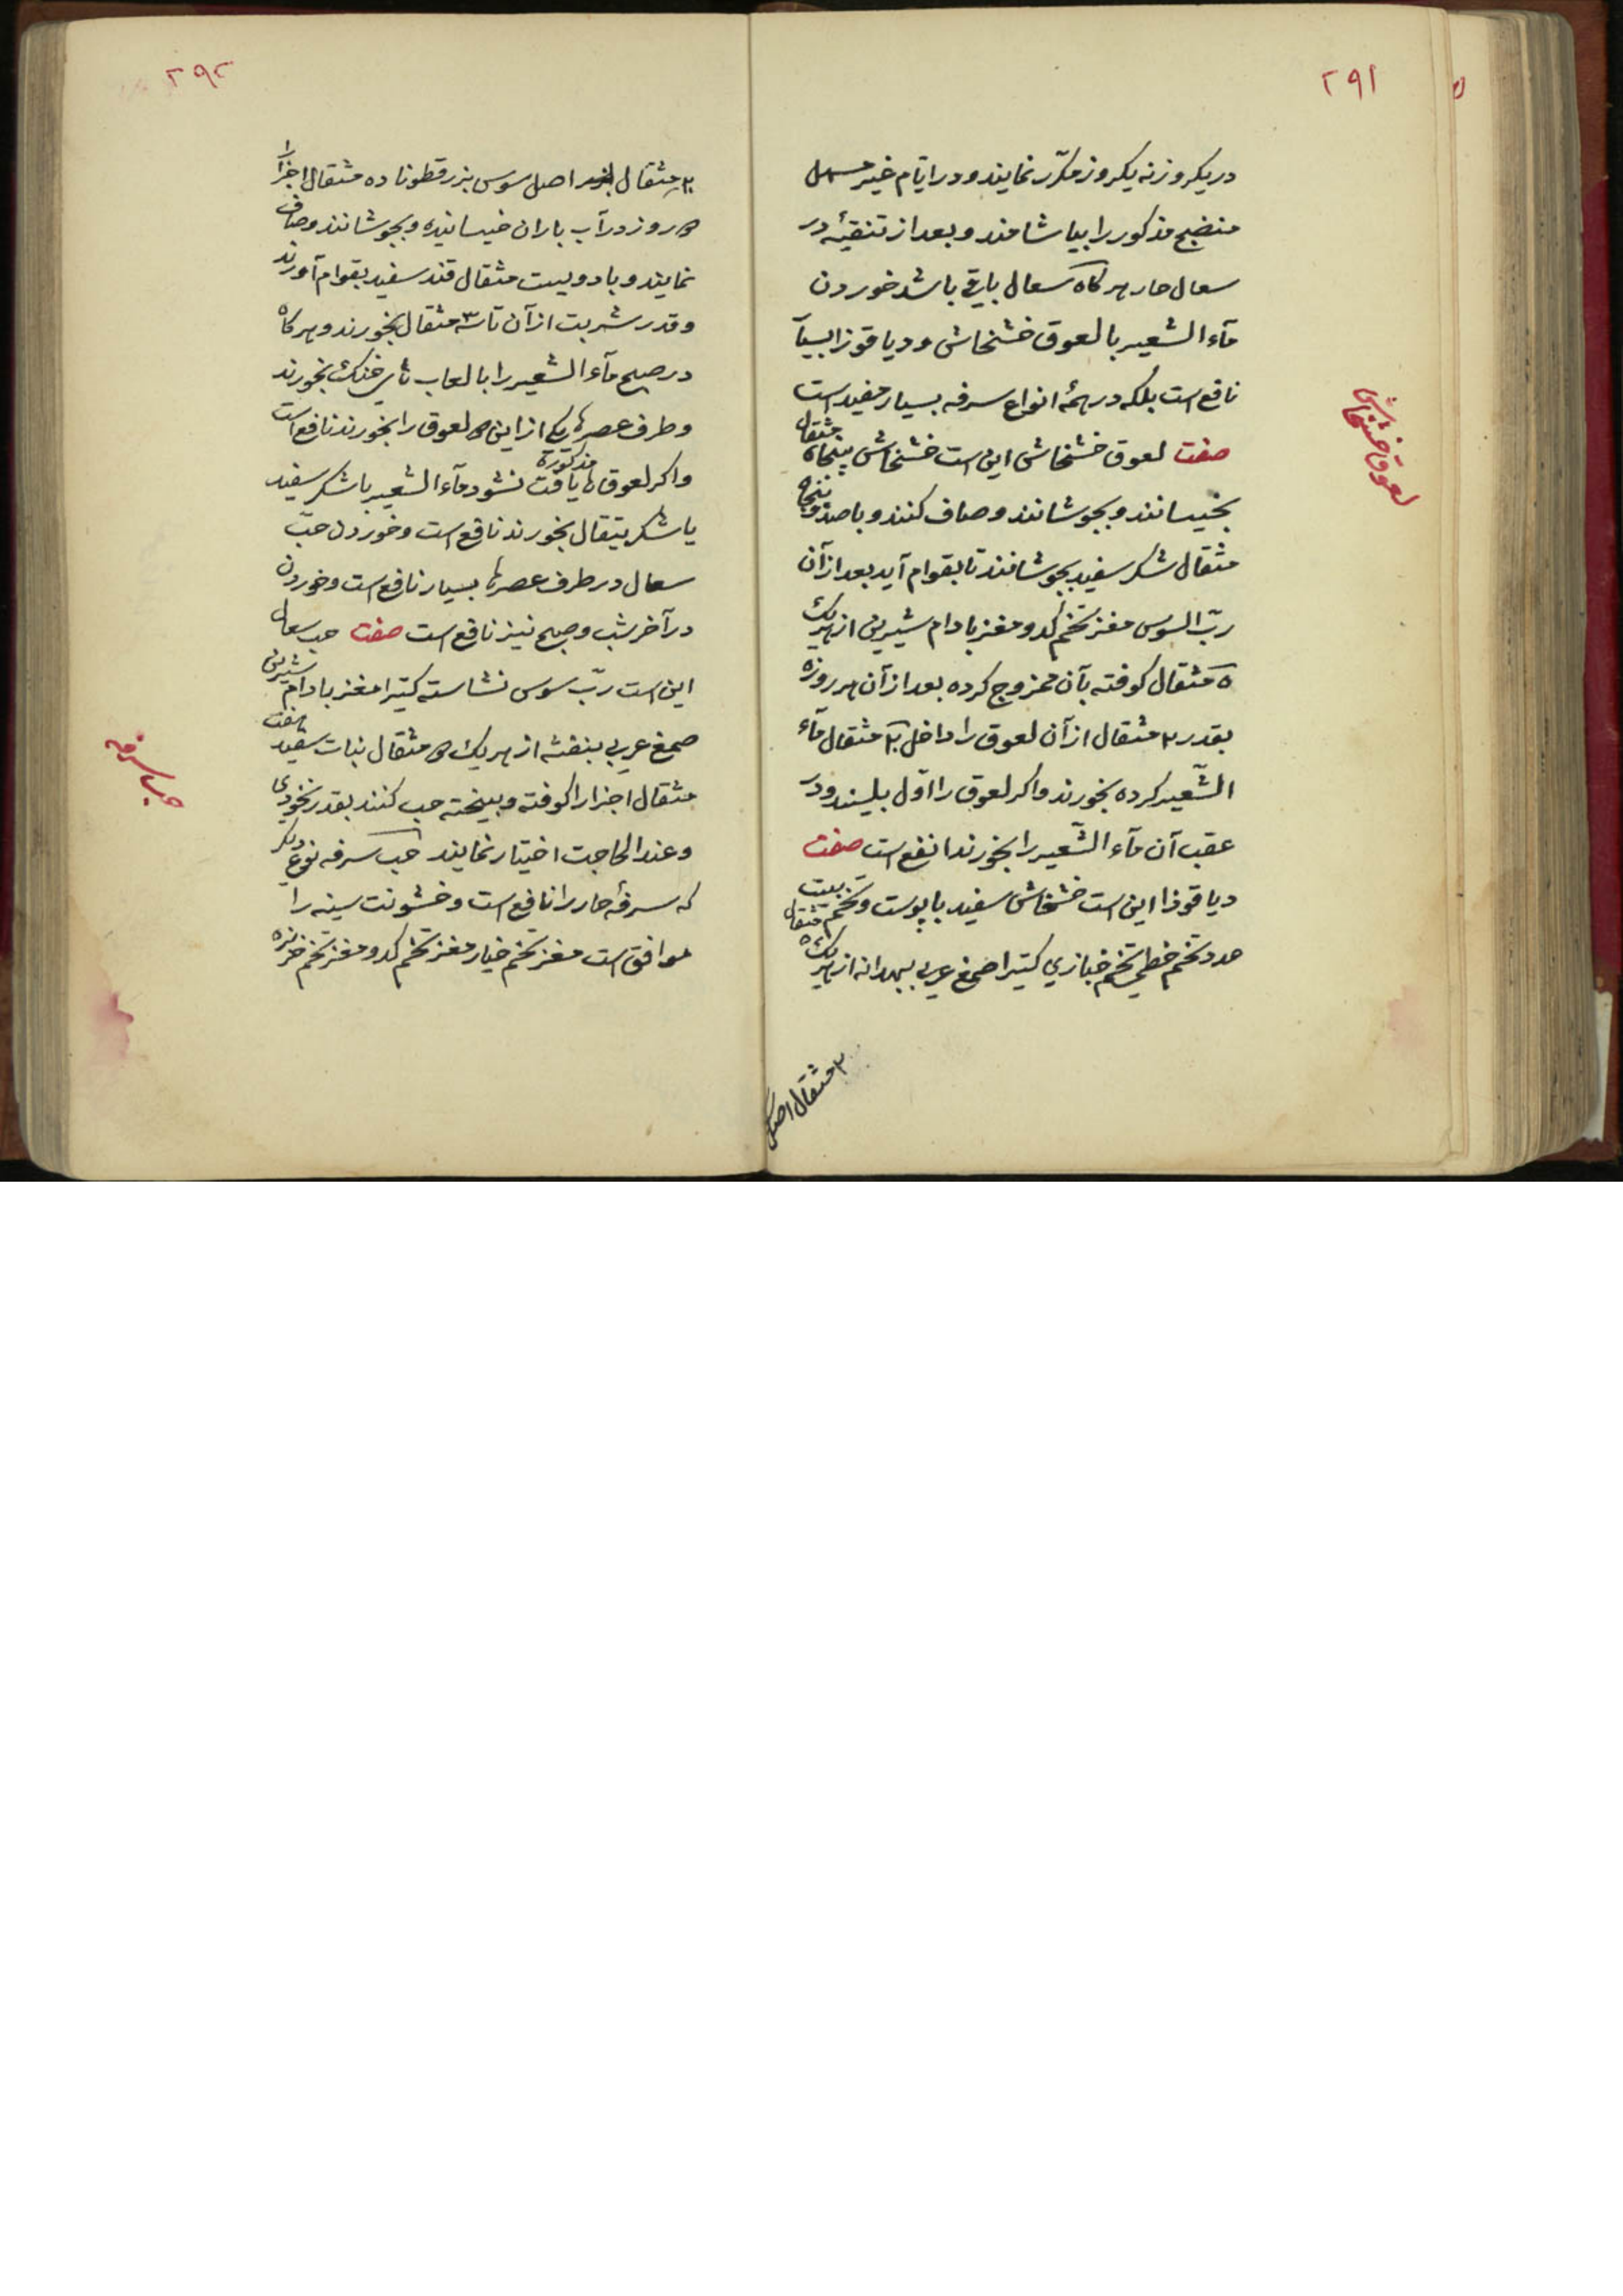 ۲۹۱
در یکروز نه یکروز مکرّر نمایند و در ایّام غیر مسهل
منضج مذکور را بیاشامند و بعد از تنقیهٔ در
سعال حار هرکاه سعال باقی باشد خوردن
مآء الشعیر با لعوق خشخاش و دیاقوزا بسیآ
نافع است بلکه در همهٔ انواع سرفه بسیار مفید است
صفت لعوق خشخاش این است خشخاش پنجاه مثقال
بخیسانند و بجوشانند و صاف کنند و با صد و پنجاه
مثقال شکر سفید بجوشانند تا بقوام آید بعد از آن
ربّ السوس مغز تخم کدو مغز بادام شیرین از هریک
۵ مثقال کوفته بآن ممزوج کرده بعد از آن هر روزه
بقدر ۲ مثقال از آن لعوق را داخل ۲۰ مثقال مآء
الشّعیر کرده بخورند و اکر لعوق را اوّل بلیسند و در
عقب آن مآء الشّعیر را بخورند انفع است صفت
دیاقوذا این است خشخاش سفید با پوست و تخم بیست
عدد تخم خطمی تخم خبازی کتیرا صمغ عربی بهدانه از هریک ۵ مثقال
۲۰ مثقال اصل
لعوق خشخاش
۲۹۲
۲۰ مثقال اصل سوس بزرقطونا ده مثقال اجزا را
روز در آب باران خیسانیده و بجوشانند و صاف
نمایند و با دویست مثقال قند سفید بقوام آورند
و قدر شربت از آن تا ۳ مثقال بخورند و هرکاه
در صبح مآء الشعیر را با لعاب های خنک بخورند
و طرف عصرها یکی از این لعوق را بخورند نافع است
و اکر لعوق ها مذکوره یافت نشود مآء الشعیر با شکر سفید
یا شکر تیقال بخورند نافع است و خوردن حبّ
سعال در طرف عصرها بسیار نافع است و خوردن
در آخر شب و صبح نیز نافع است صفت حب سعال
این است ربّ سوس نشاسته کتیرا مغز بادام شیرین
صمغ عربی بنفشه از هریک مثقال نبات سفید هفت
مثقال اجزا را کوفته و بیخته حب کنند بقدر نخودی
و عند الحاجت اختیار نمایند حب سرفه نوع دیکر
که سرفهٔ حار را نافع است و خشونت سینه را
موافق است مغز تخم خیار مغز تخم کدو مغز تخم خربزه
حب سرفه